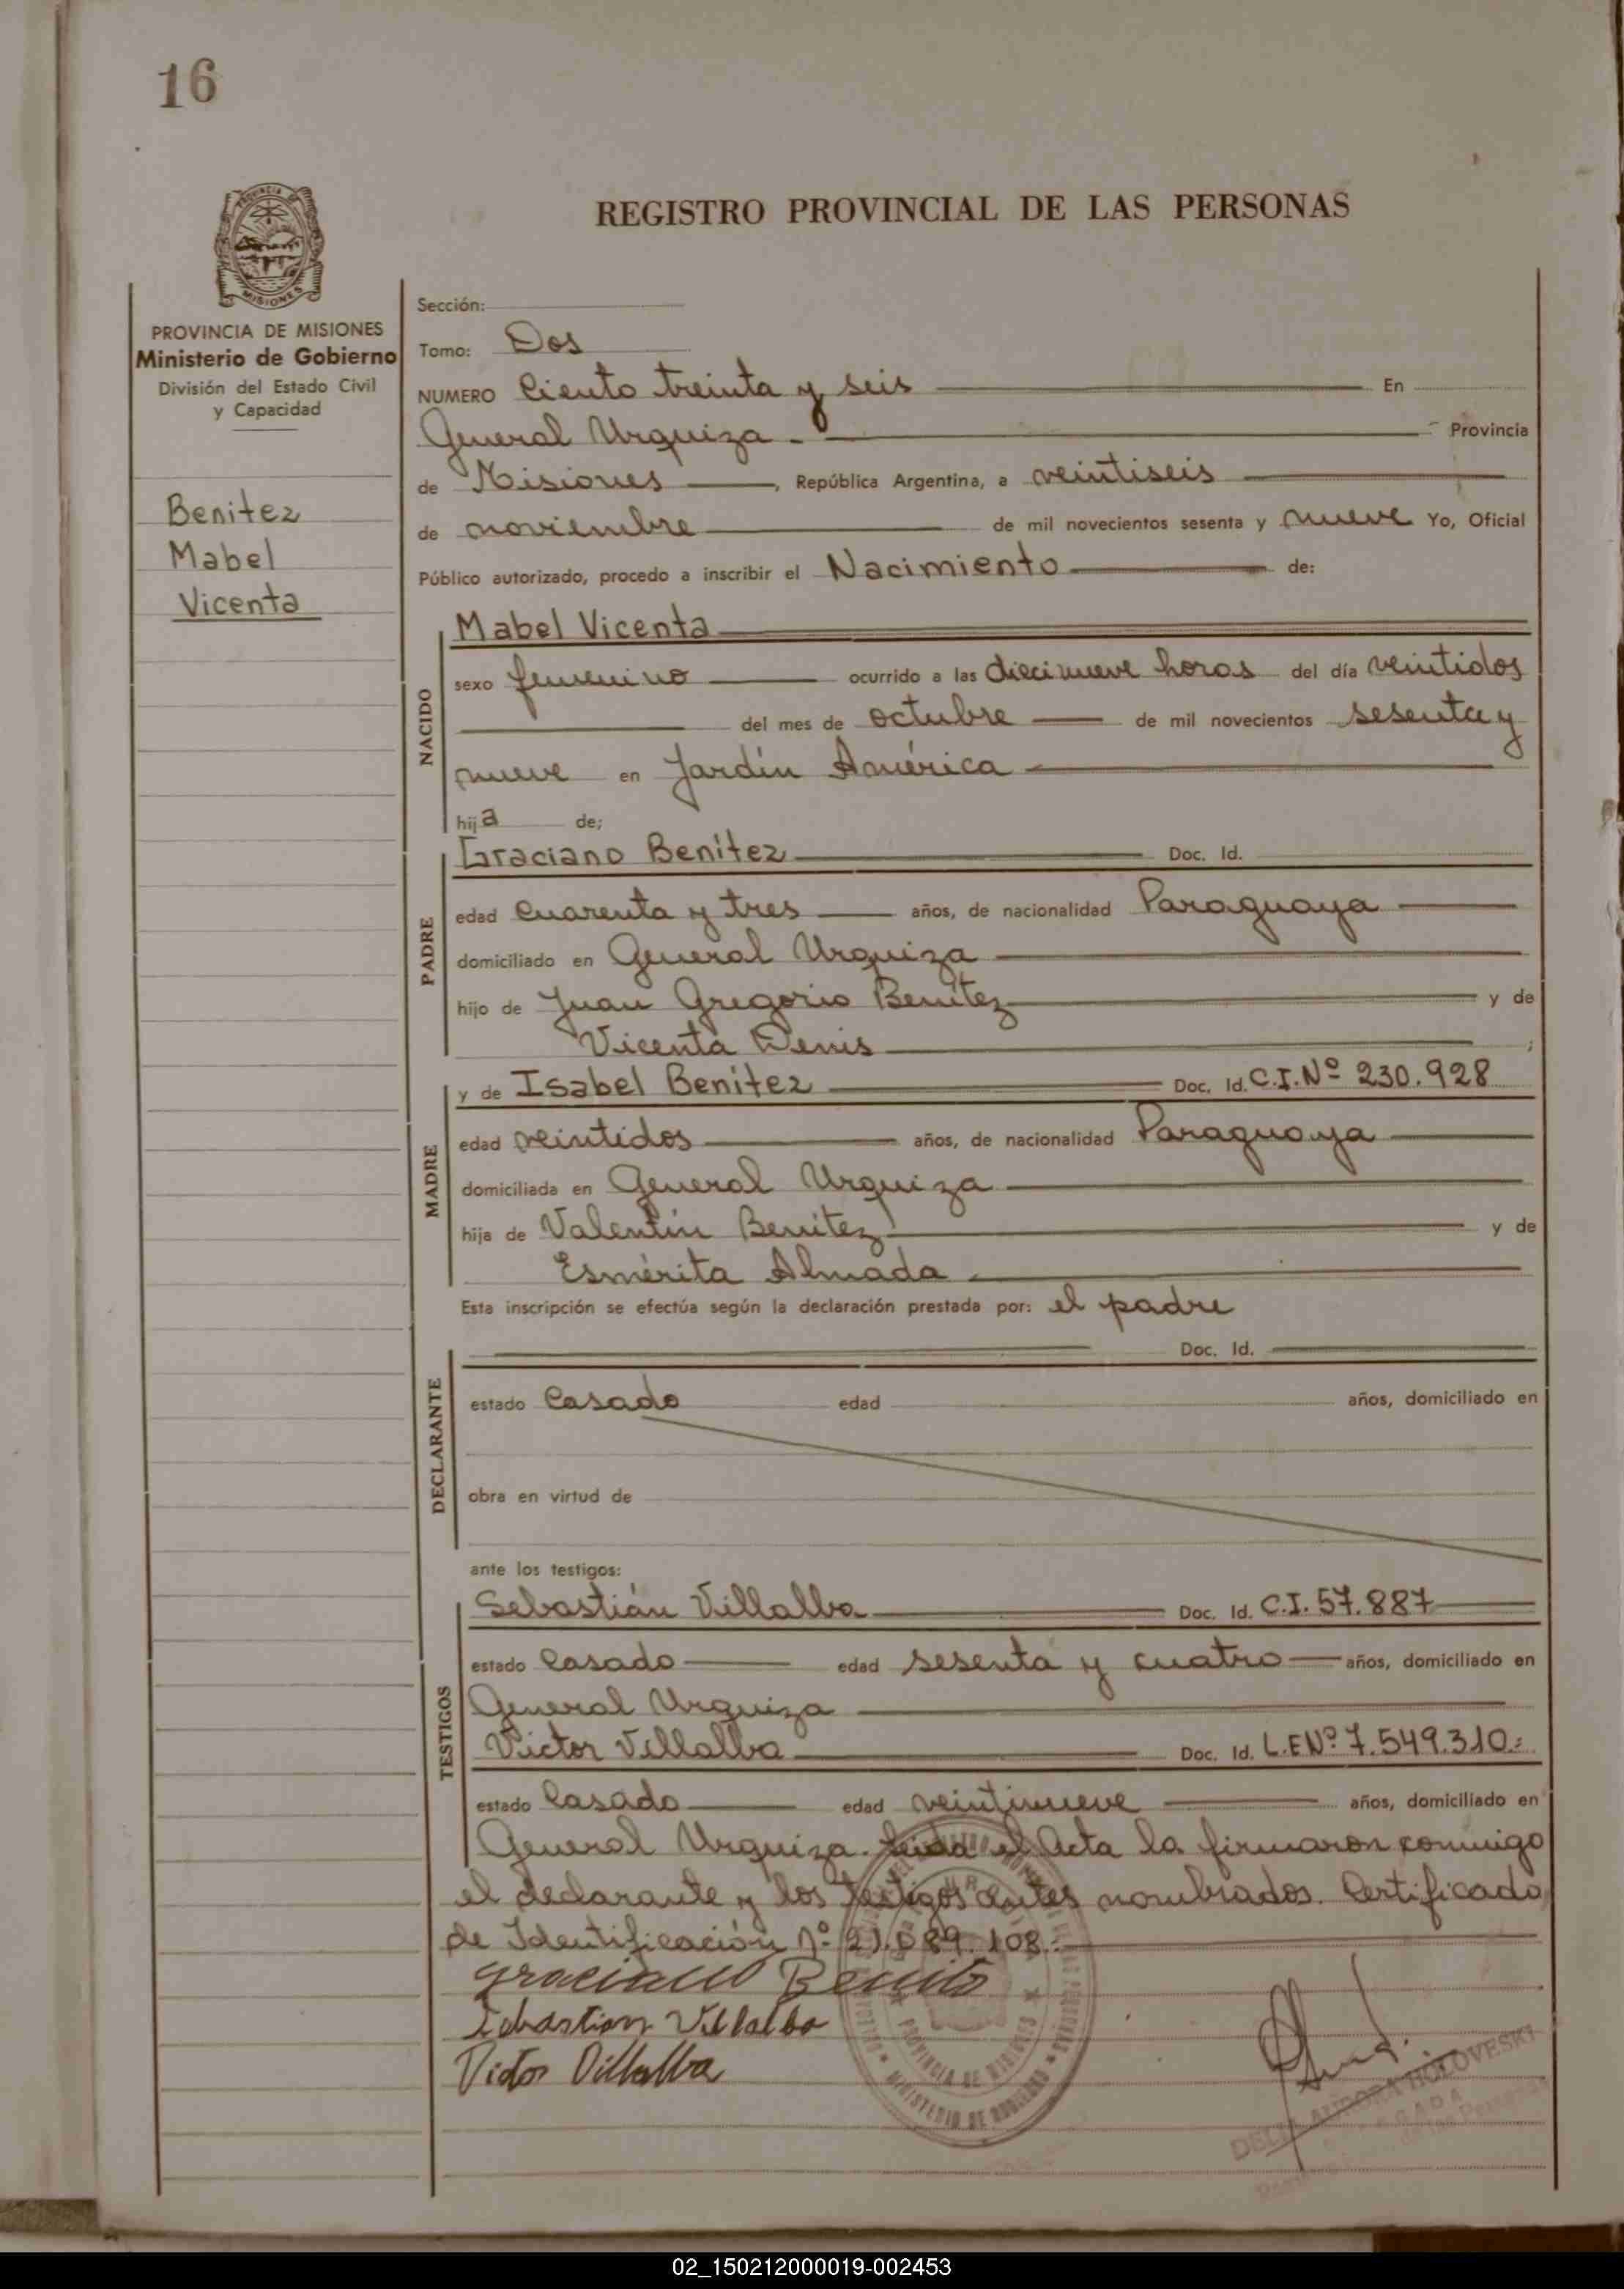 16
REGISTRO PROVINCIAL DE LAS PERSONAS
PROVINCIA DE MISIONES
Ministerio de Gobierno
División del Estado Civil
y Capacidad
Benitez
Mabel
Vicenta
Sección:
Tomo: Dos
NUMERO Ciento treinta y seis En
General Urquiza - Provincia
de Misiones, República Argentina, a veintiseis
de noviembre de mil novecientos sesenta y nueve Yo, Oficial
Público autorizado, procedo a inscribir el Nacimiento de:
NACIDO
Mabel Vicenta
sexo femenino ocurrido a las diecinueve horas del día veintidos
del mes de octubre de mil novecientos sesenta y
nueve en Jardín América
hija de;
PADRE
Graciano Benítez Doc. Id.
edad Cuarenta y tres años, de nacionalidad Paraguaya
domiciliado en General Urquiza
hijo de Juan Gregorio Benítez y de
Vicenta Denis ;
MADRE
y de Isabel Benítez Doc. Id. C.I.Nº 230.928
edad veintidos años, de nacionalidad Paraguaya
domiciliada en General Urquiza
hija de Valentín Benítez y de
Esmérita Almada
Esta inscripción se efectúa según la declaración prestada por: el padre
DECLARANTE
Doc. Id.
estado Casado edad años, domiciliado en
obra en virtud de
ante los testigos:
TESTIGOS
Sebastián Villalba Doc. Id. C.I. 57.887
estado Casado edad sesenta y cuatro años, domiciliado en
General Urquiza
Victor Villalba Doc. Id. L.ENº 7.549.310.=
estado Casado edad veintinueve años, domiciliado en
General Urquiza. Leida el Acta la firmaron conmigo
el declarante y los testigos antes nombrados. Certificado
de Identificación Nº 21.089.108.=
Graciano Benito
Sebastian Villalba
Victor Villalba
PROVINCIA DE MISIONES
MINISTERIO DE GOBIERNO
DELIA AURORA HOLOVESKI
02_150212000019-002453